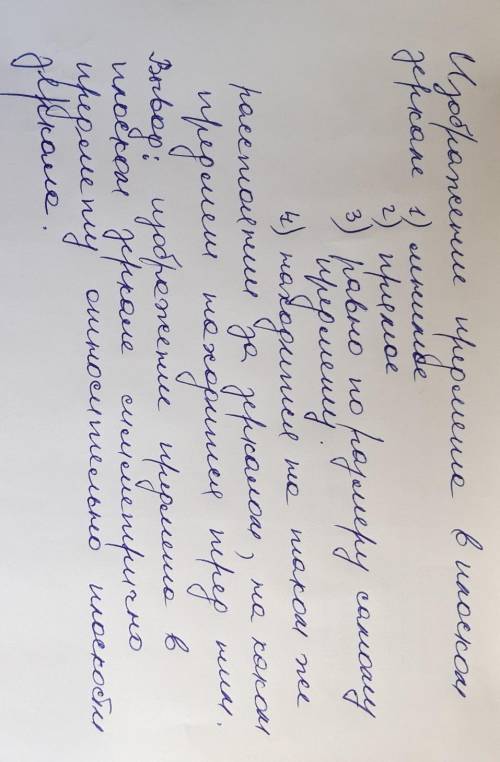 Изображение предмета в плоском
зеркале 1) мнимое
2) прямое
3) равно по размеру самому
предмету.
4) находится на таком же
расстоянии за зеркалом, на каком
предмет находится перед ним.
Вывод: изображение предмета в
плоском зеркале симметрично
предмету относительно плоскости
зеркала.